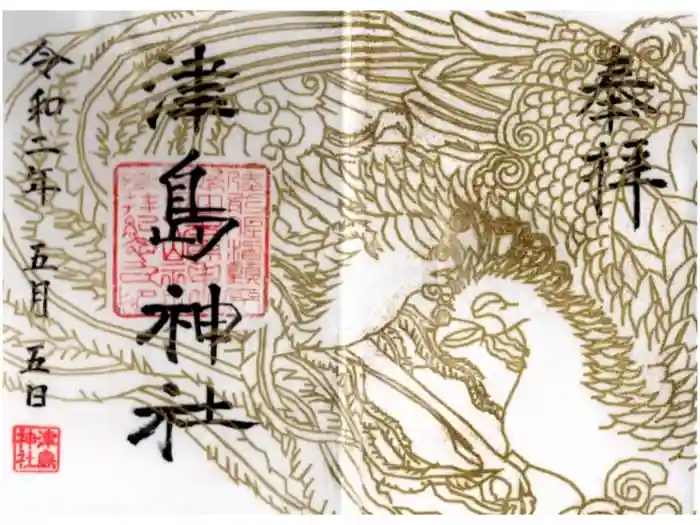 奉拝
津島神社
令和二年 五月 五日
津島
神社